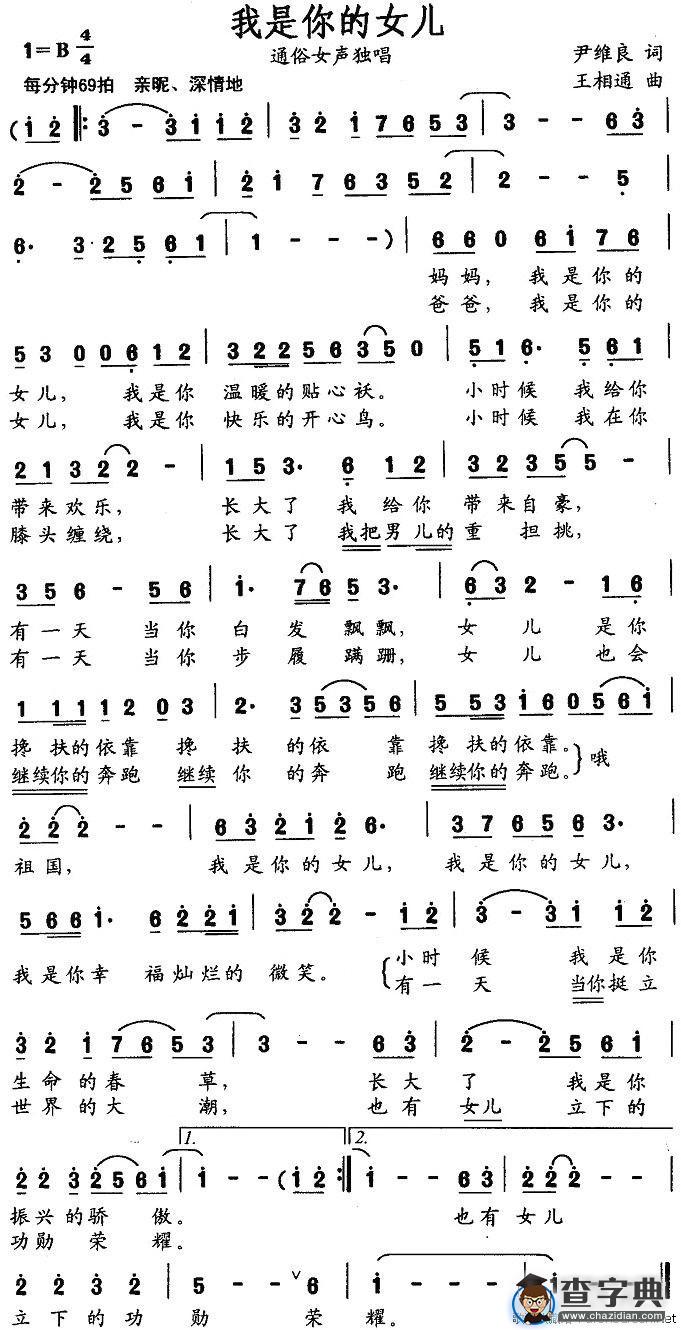 我是你的女儿
1=B 4/4
通俗女声独唱
尹维良 词
每分钟69拍 亲昵、深情地
王相通 曲
(i 2 ‖: 3 - 3 i i 2 | 3 2 1 7 6 5 3 | 3 - - 6 3 |
2 - 2 5 6 i | 2 i 7 6 3 5 2 | 2 - - 5 |
6· 3 2 5 6 1 | 1 - - - ) | 6 6 0 6 i 7 6 |
妈妈, 我是你的
爸爸, 我是你的
5 3 0 0 6 1 2 | 3 2 2 5 6 3 5 0 | 5 1 6· 5 6 1 |
女儿, 我是你 温暖的贴心袄。 小时候 我给你
女儿, 我是你 快乐的开心鸟。 小时候 我在你
2 1 3 2 2 - | 1 5 3· 6 1 2 | 3 2 3 5 5 - |
带来欢乐, 长大了 我给你 带来自豪,
膝头缠绕, 长大了 我把男儿的重担挑,
3 5 6 - 5 6 | i· 7 6 5 3· | 6 3 2 - 1 6 |
有一天 当你 白发飘飘, 女儿 是你
有一天 当你 步履蹒跚, 女儿 也会
1 1 1 1 2 0 3 | 2· 3 5 3 5 6 | 5 5 3 i 6 0 5 6 i |
搀扶的依靠 搀扶的依靠 搀扶的依靠。
继续你的奔跑 继续你的奔跑 继续你的奔跑。} 哦
2 2 2 - - | 6 3 2 i 2 6· | 3 7 6 5 6 3· |
祖国, 我是你的女儿, 我是你的女儿,
5 6 6 i· 6 2 2 i | 3 2 2 - i 2 | 3 - 3 i i 2 |
我是你幸福灿烂的微笑。 {小时候 我是你
有一天 当你挺立
3 2 i 7 6 5 3 | 3 - - 6 3 | 2 - 2 5 6 i |
生命的春草, 长大了 我是你
世界的大潮, 也有女儿 立下的
1. 2.
2 2 3 2 5 6 i | i - - (i 2 :‖ i - - 6 3 | 2 2 2 - - |
振兴的骄傲。 也有女儿
功勋荣耀。
2 2 3 2 | 5 - - ∨ 6 | i - - - | i
立下的功勋 荣耀。
查字典
www.chazidian.com